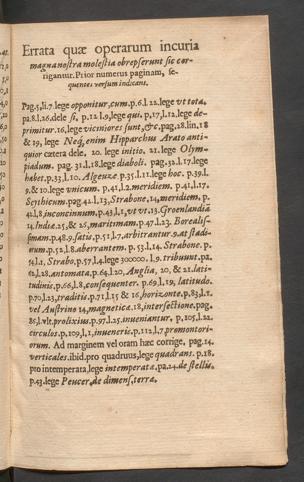 Errata quæ operarum incuria
magna nostra molestia obrepserunt sic cor-
rigantur. Prior numerus paginam, se-
quentes versum indicans.
Pag. 5, li. 7. lege opponitur, cum. p. 6. l. 22. lege vt tota,
pa. 8. l. 26. dele si, p. 12 l. 9, lege qui, p. 17, l. 12, lege de-
primitur. 16, lege viciniores sunt, &c, pag. 28. lin. 18
& 19, lege Neq, enim Hipparchus Arato anti-
quior cætera dele, 20. lege initio. 21. lege Olym-
piadum. pag. 31. l. 18. lege diaboli. pag. 32. l. 17. lege
habet. p. 33, l. 10. Algeuze p. 35. l. 11. lege hoc. p. 39. l.
9. & 10. lege vnicum. p. 41. l. 2. meridiem. p. 41, l. 17.
Scythicum. pag. 42. l. 13, Strabone, 14, meridiem, p.
42. l. 8, inconcinnum. p. 43. l. 1, vt vt. 13. Groenlandia
14. India. 25, & 26, maritimam. p. 47. l. 23. Borealis-
simam. p. 48. 9. satis, p. 51. l. 7, arbitrantur 9. at stadi-
orum. p. 52. l. 8. aberrantem. p. 53. l. 14. Strabone. p.
54. l. 1, Strabo. p. 57, l. 4. lege 300000. l. 9. tribuunt. pa.
62, l. 28, antomata. p. 64. l. 20, Anglia, 20, & 21. lati-
tudinis, p. 66. l. 8, consequenter. p. 69. l. 19, latitudo.
p. 70, l. 23, traditis. p. 71. l. 15 & 16, horizonte. p. 83, l. 2.
vel Austrino 14, magnetica. 18, intersectione. pag.
86, l. vlt. prolixius. p. 97. l. 25. inueniantur, p. 105, l. 22.
circulos. p. 109, l. 1, inueneris. p. 112, l. 7 promontori-
orum. Ad marginem vel oram hæc corrige, pag. 14.
verticales. ibid. pro quadruus, lege quadrans. p. 18.
pro intemperata, lege intemperata, pa. 24. de stellis.
p. 43. lege Peucer, de dimens, terræ.